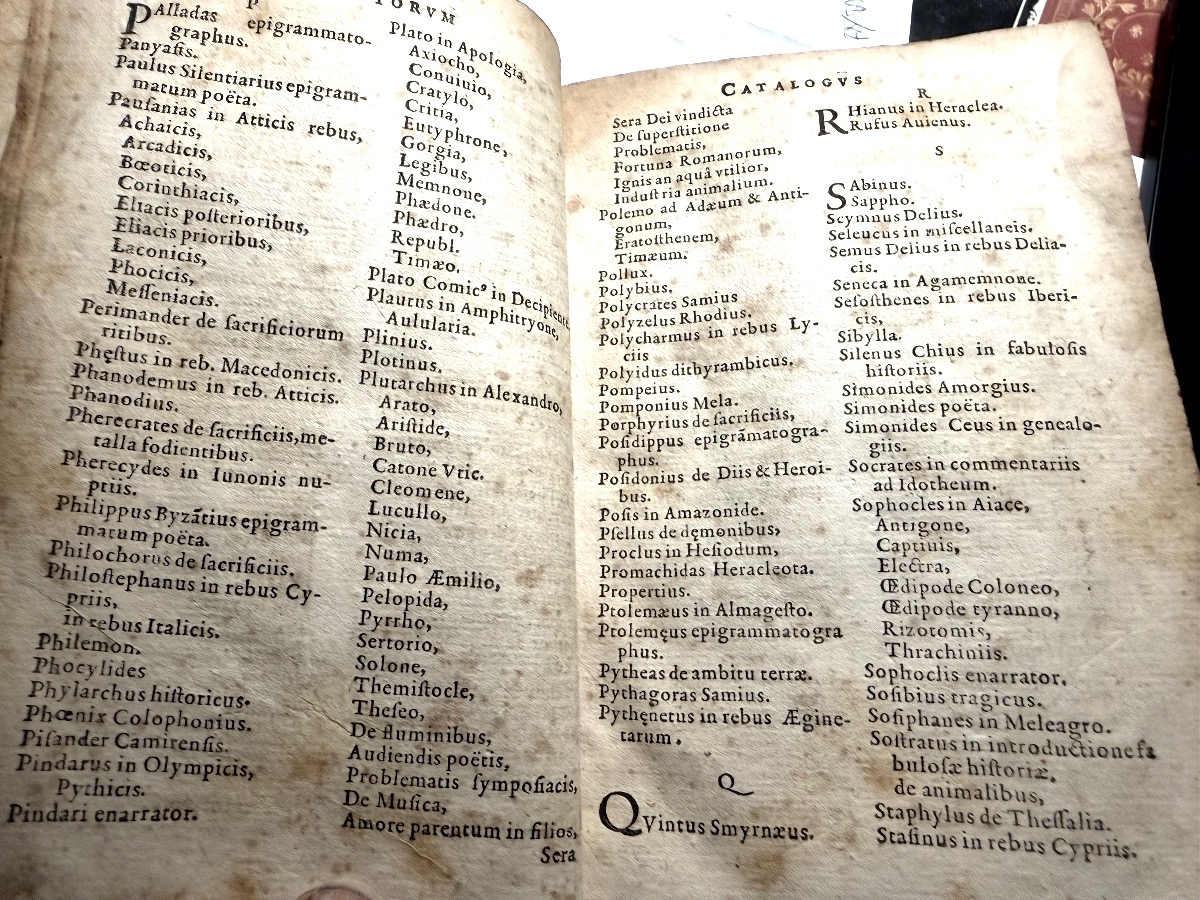 TORVM
P
PAlladas epigrammato-
graphus.
Panyasis.
Paulus Silentiarius epigram-
matum poëta.
Pauſanias in Atticis rebus,
Achaicis,
Arcadicis,
Bœoticis,
Corinthiacis,
Eliacis poſterioribus,
Eliacis prioribus,
Laconicis,
Phocicis,
Meſſeniacis.
Perimander de ſacrificiorum
ritibus.
Phęſtus in reb. Macedonicis.
Phanodemus in reb. Atticis.
Phanodius.
Pherecrates de ſacrificiis,me-
talla fodientibus.
Pherecydes in Iunonis nu-
ptiis.
Philippus Byzãtius epigram-
matum poëta.
Philochorus de ſacrificiis.
Philoſtephanus in rebus Cy-
priis,
in rebus Italicis.
Philemon.
Phocylides
Phylarchus hiſtoricus.
Phœnix Colophonius.
Piſander Camirenſis.
Pindarus in Olympicis,
Pythicis.
Pindari enarrator.
Plato in Apologia,
Axiocho,
Conuiuio,
Cratylo,
Critia,
Eutyphrone,
Gorgia,
Legibus,
Memnone,
Phædone.
Phædro,
Republ.
Timæo.
Plato Comicꝰ in Decipiente.
Plautus in Amphitryone,
Aulularia.
Plinius.
Plotinus.
Plutarchus in Alexandro,
Arato,
Ariſtide,
Bruto,
Catone Vtic.
Cleomene,
Lucullo,
Nicia,
Numa,
Paulo Æmilio,
Pelopida,
Pyrrho,
Sertorio,
Solone,
Themiſtocle,
Theſeo,
De fluminibus,
Audiendis poëtis,
Problematis ſympoſiacis,
De Muſica,
Amore parentum in filios,
Sera
CATALOGVS
Sera Dei vindicta
De ſuperſtitione
Problematis,
Fortuna Romanorum,
Ignis an aquâ vtilior,
Induſtria animalium.
Polemo ad Adæum & Anti-
gonum,
Eratoſthenem,
Timæum.
Pollux.
Polybius.
Polycrates Samius
Polyzelus Rhodius.
Polycharmus in rebus Ly-
ciis
Polyidus dithyrambicus.
Pompeius.
Pomponius Mela.
Porphyrius de ſacrificiis,
Poſidippus epigrãmatogra-
phus.
Poſidonius de Diis & Heroi-
bus.
Poſis in Amazonide.
Pſellus de dęmonibus,
Proclus in Heſiodum,
Promachidas Heracleota.
Propertius.
Ptolemæus in Almageſto.
Ptolemęus epigrammatogra
phus.
Pytheas de ambitu terræ.
Pythagoras Samius.
Pythęnetus in rebus Ægine-
tarum.
Q
QVintus Smyrnæus.
R
RHianus in Heraclea.
Rufus Auienus.
S
SAbinus.
Sappho.
Scymnus Delius.
Seleucus in miſcellaneis.
Semus Delius in rebus Delia-
cis.
Seneca in Agamemnone.
Seſoſthenes in rebus Iberi-
cis,
Sibylla.
Silenus Chius in fabuloſis
hiſtoriis.
Simonides Amorgius.
Simonides poëta.
Simonides Ceus in genealo-
giis.
Socrates in commentariis
ad Idotheum.
Sophocles in Aiace,
Antigone,
Captiuis,
Electra,
Œdipode Coloneo,
Œdipode tyranno,
Rizotomis,
Thrachiniis.
Sophoclis enarrator.
Soſibius tragicus.
Soſiphanes in Meleagro.
Soſtratus in introductione fa
buloſæ hiſtoriæ,
de animalibus,
Staphylus de Theſſalia.
Staſinus in rebus Cypriis.